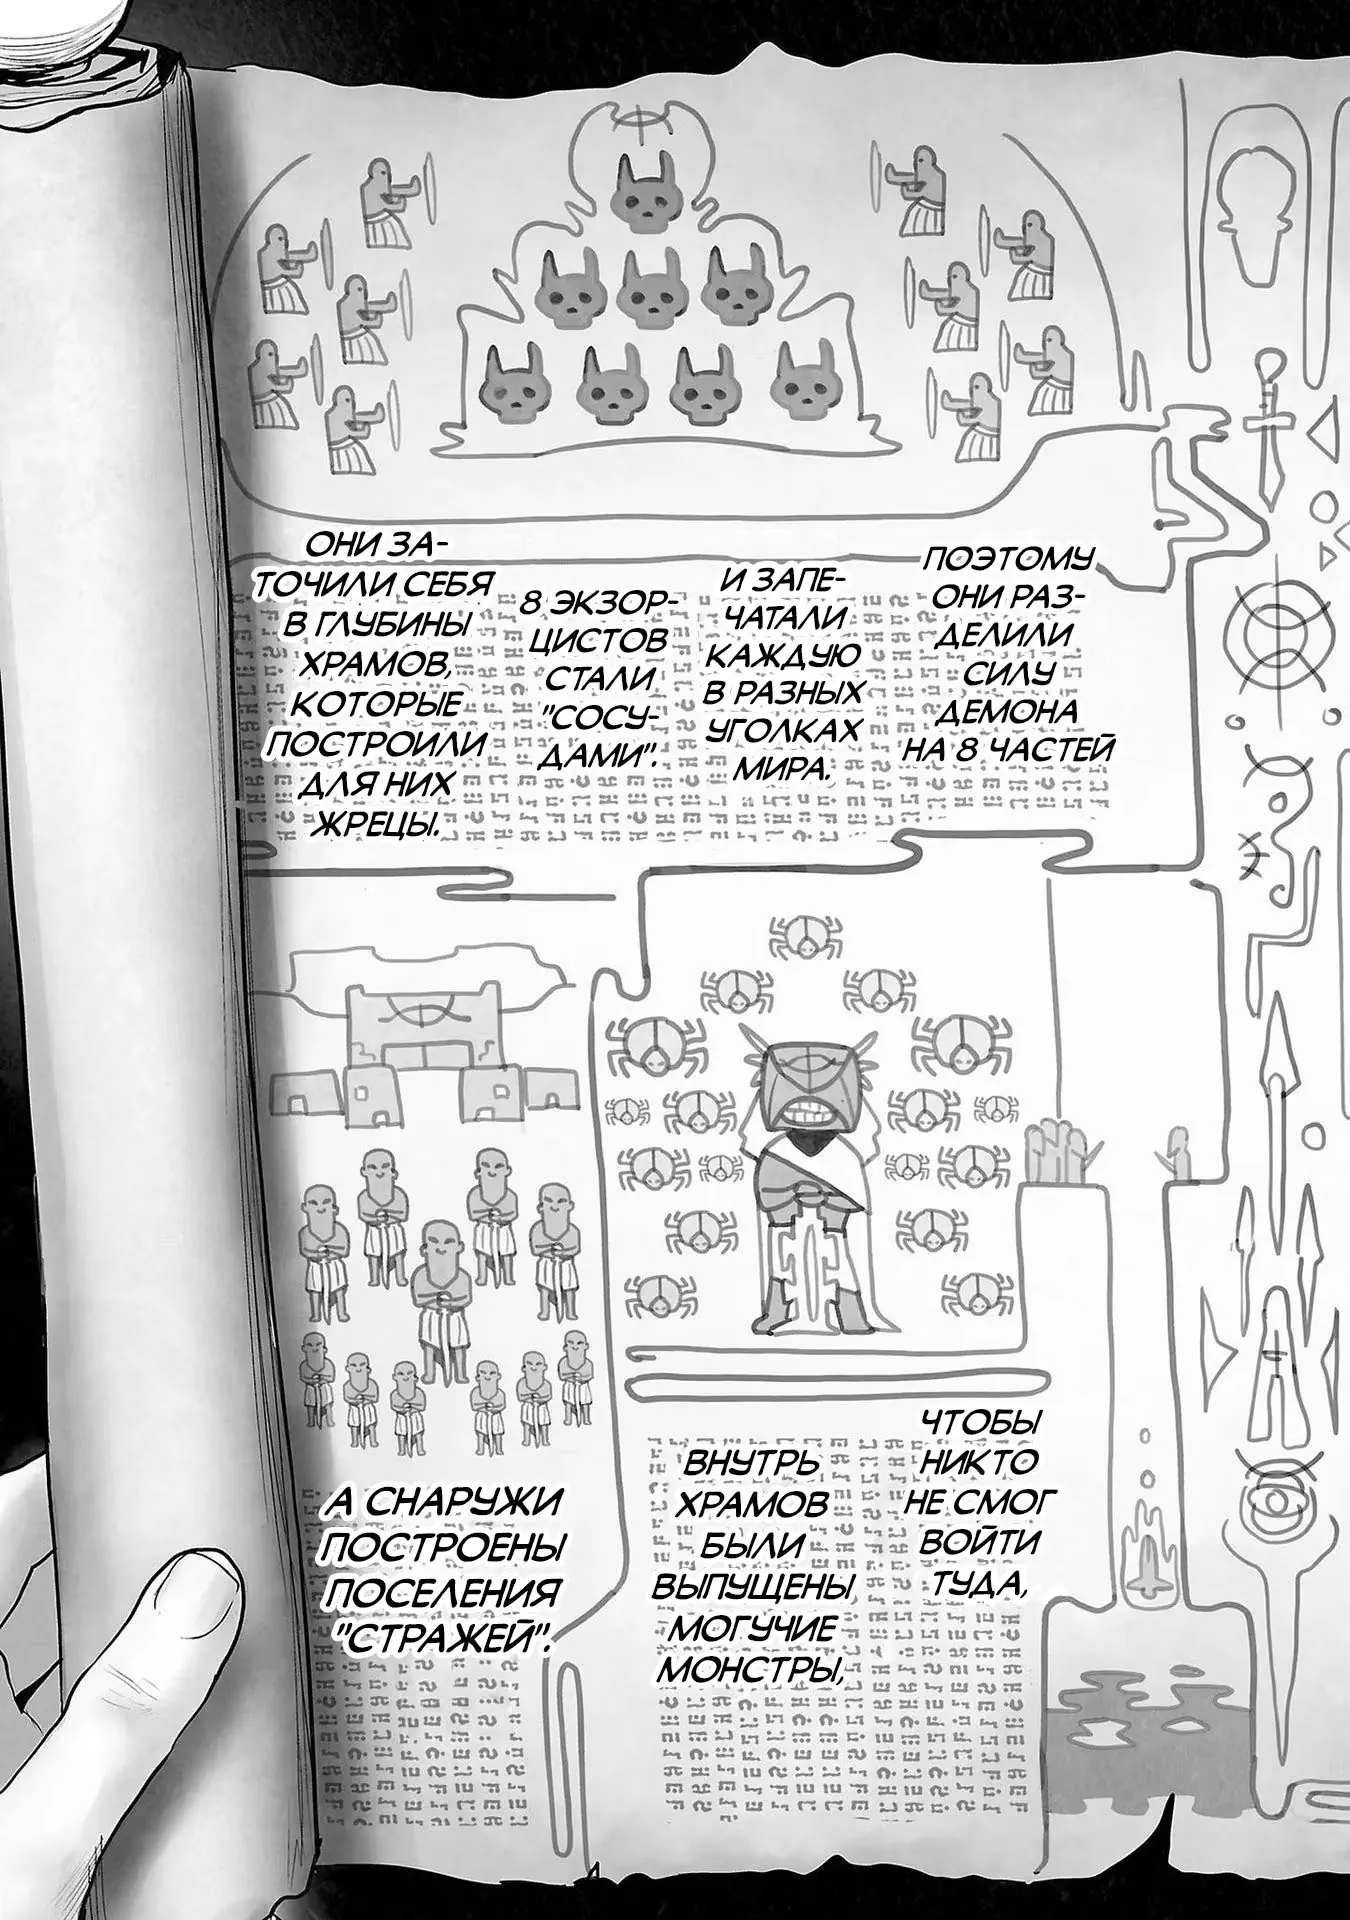 ПОЭТОМУ
ОНИ РАЗ-
ДЕЛИЛИ
СИЛУ
ДЕМОНА
НА 8 ЧАСТЕЙ
И ЗАПЕ-
ЧАТАЛИ
КАЖДУЮ
В РАЗНЫХ
УГОЛКАХ
МИРА.
8 ЭКЗОР-
ЦИСТОВ
СТАЛИ
"СОСУ-
ДАМИ".
ОНИ ЗА-
ТОЧИЛИ СЕБЯ
В ГЛУБИНЫ
ХРАМОВ,
КОТОРЫЕ
ПОСТРОИЛИ
ДЛЯ НИХ
ЖРЕЦЫ.
ЧТОБЫ
НИКТО
НЕ СМОГ
ВОЙТИ
ТУДА,
ВНУТРЬ
ХРАМОВ
БЫЛИ
ВЫПУЩЕНЫ
МОГУЧИЕ
МОНСТРЫ,
А СНАРУЖИ
ПОСТРОЕНЫ
ПОСЕЛЕНИЯ
"СТРАЖЕЙ".